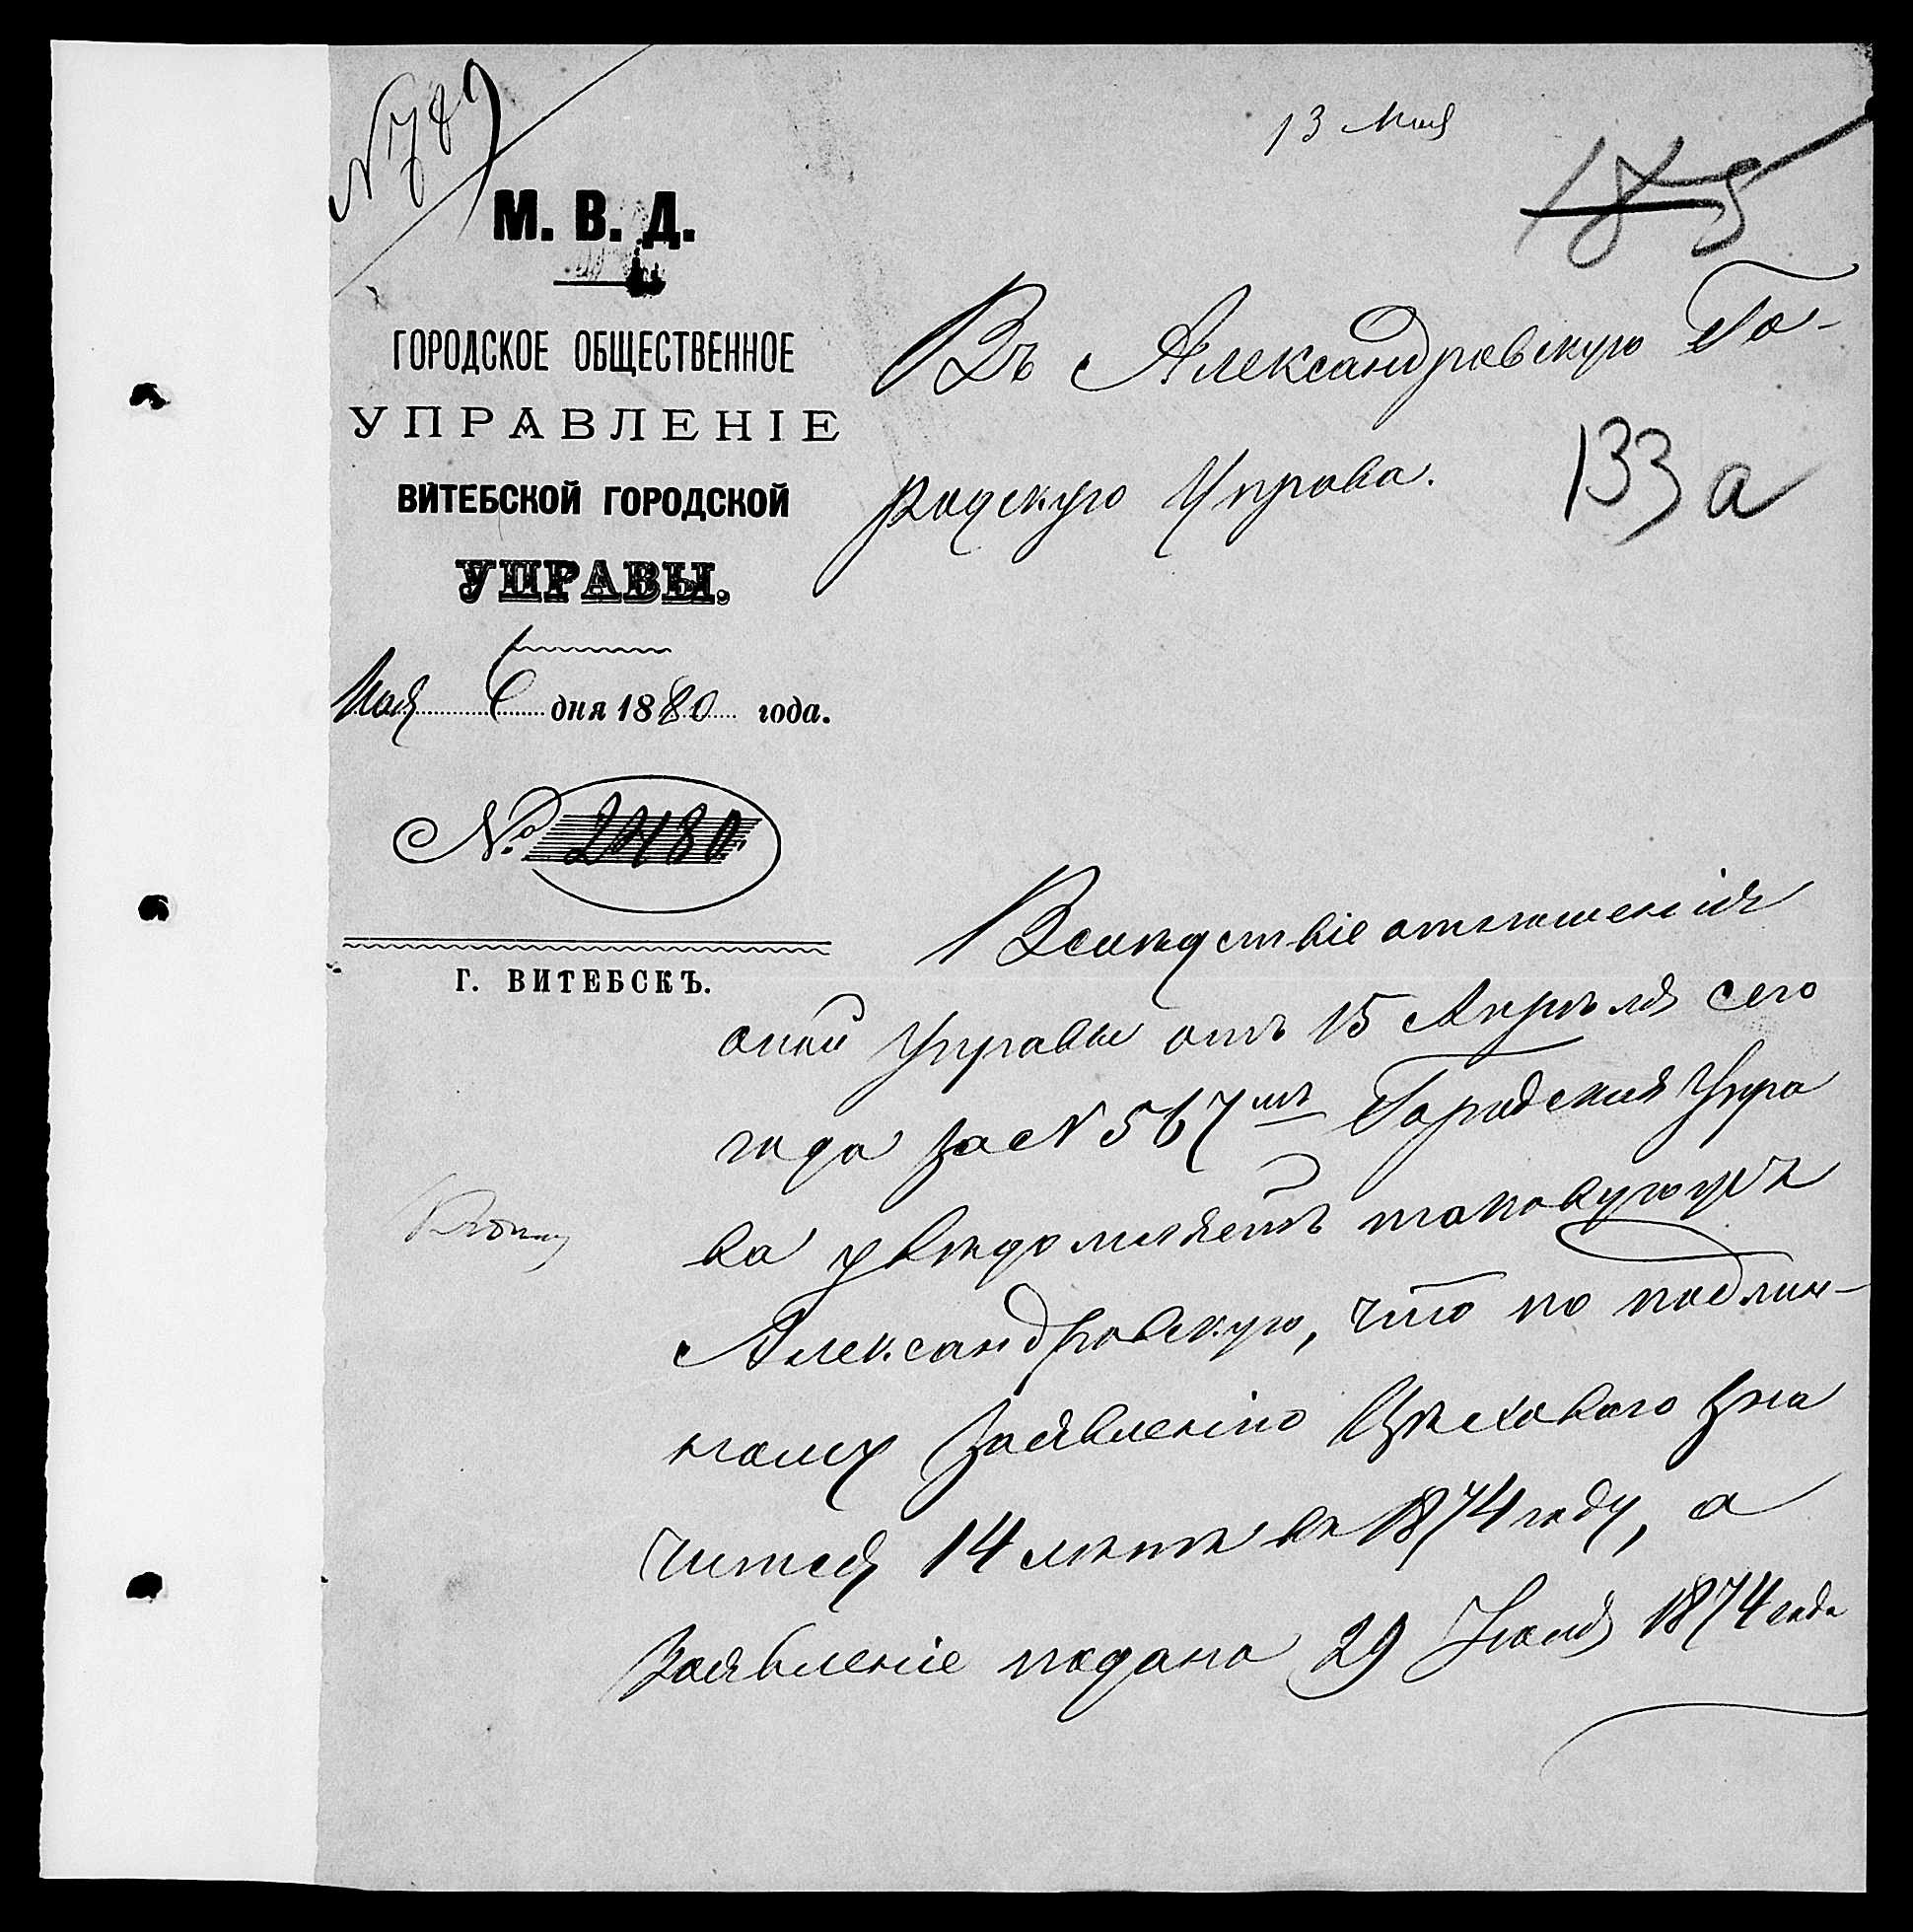 № 789
13 Мая
185
М. В. Д.
ГОРОДСКОЕ ОБЩЕСТВЕННОЕ
УПРАВЛЕНІЕ
ВИТЕБСКОЙ ГОРОДСКОЙ
УПРАВЫ.
Мая 6 дня 1880 года.
№ 2480
Г. ВИТЕБСКЪ.
Въ Александровскую Го-
родскую Управа.
133 а
Вслѣдствіе отношенія
оной Управы отъ 15 Апрѣля сего
года за № 567мъ Городская Упра
ва увѣдомляетъ таковую
Александровскую, что по подлин-
ному заявленію Цѣховаго зна
чится 14 лѣтъ въ 1874 году, а
Заявленіе подано 29 Іюля 1874 года